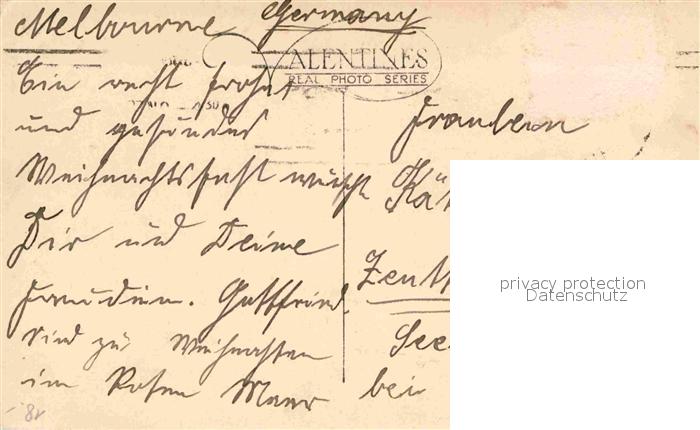 Melbourne Germany
VALENTINES
REAL PHOTO SERIES
Ein recht frohes
und gesundes
Weihnachtsfest wünscht
Dir und Deine
Freundin. Gottfried.
Sind zu Weihnachten
im Roten Meer
Fräulein
Kät
Zeutt
See
bei
privacy protection
Datenschutz